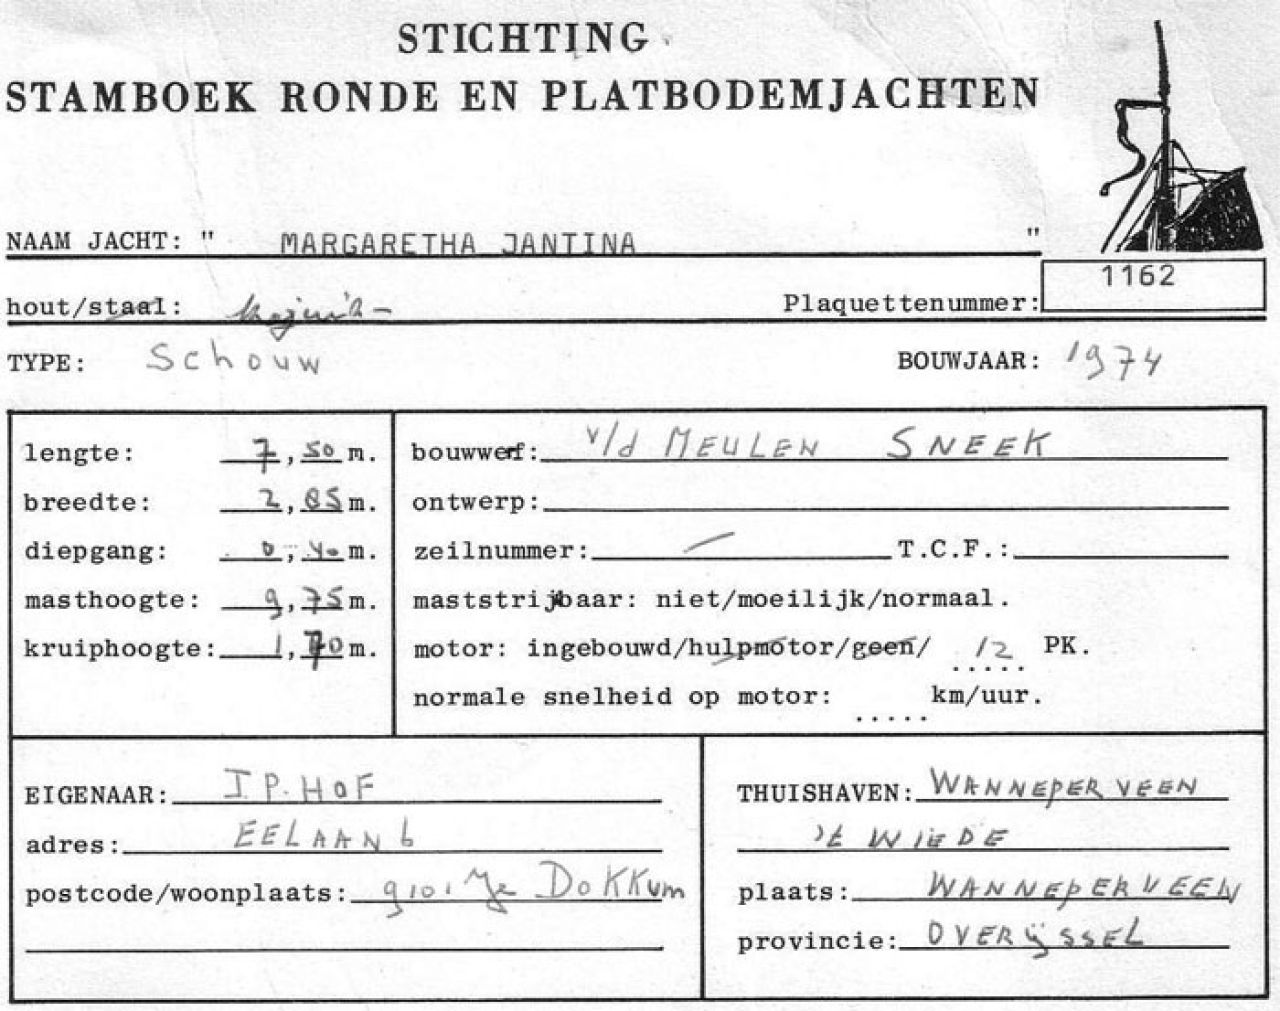 STICHTING
STAMBOEK RONDE EN PLATBODEMJACHTEN
NAAM JACHT: " MARGARETHA JANTINA "
hout/staal: Plaquettenummer: 1162
TYPE: Schouw BOUWJAAR: 1974
lengte: 7,50 m.
breedte: 2,85 m.
diepgang: 0,40 m.
masthoogte: 9,75 m.
kruiphoogte: 1,70 m.
bouwwerf: v/d MEULEN SNEEK
ontwerp:
zeilnummer: — T.C.F.:
maststrijkbaar: niet/moeilijk/normaal.
motor: ingebouwd/hulpmotor/geen/ 12 PK.
normale snelheid op motor: ..... km/uur.
EIGENAAR: J.P. HOF
adres: EELAAN 6
postcode/woonplaats: 9101 DOKKUM
THUISHAVEN: WANNEPERVEEN
't WIEDE
plaats: WANNEPERVEEN
provincie: OVERIJSSEL